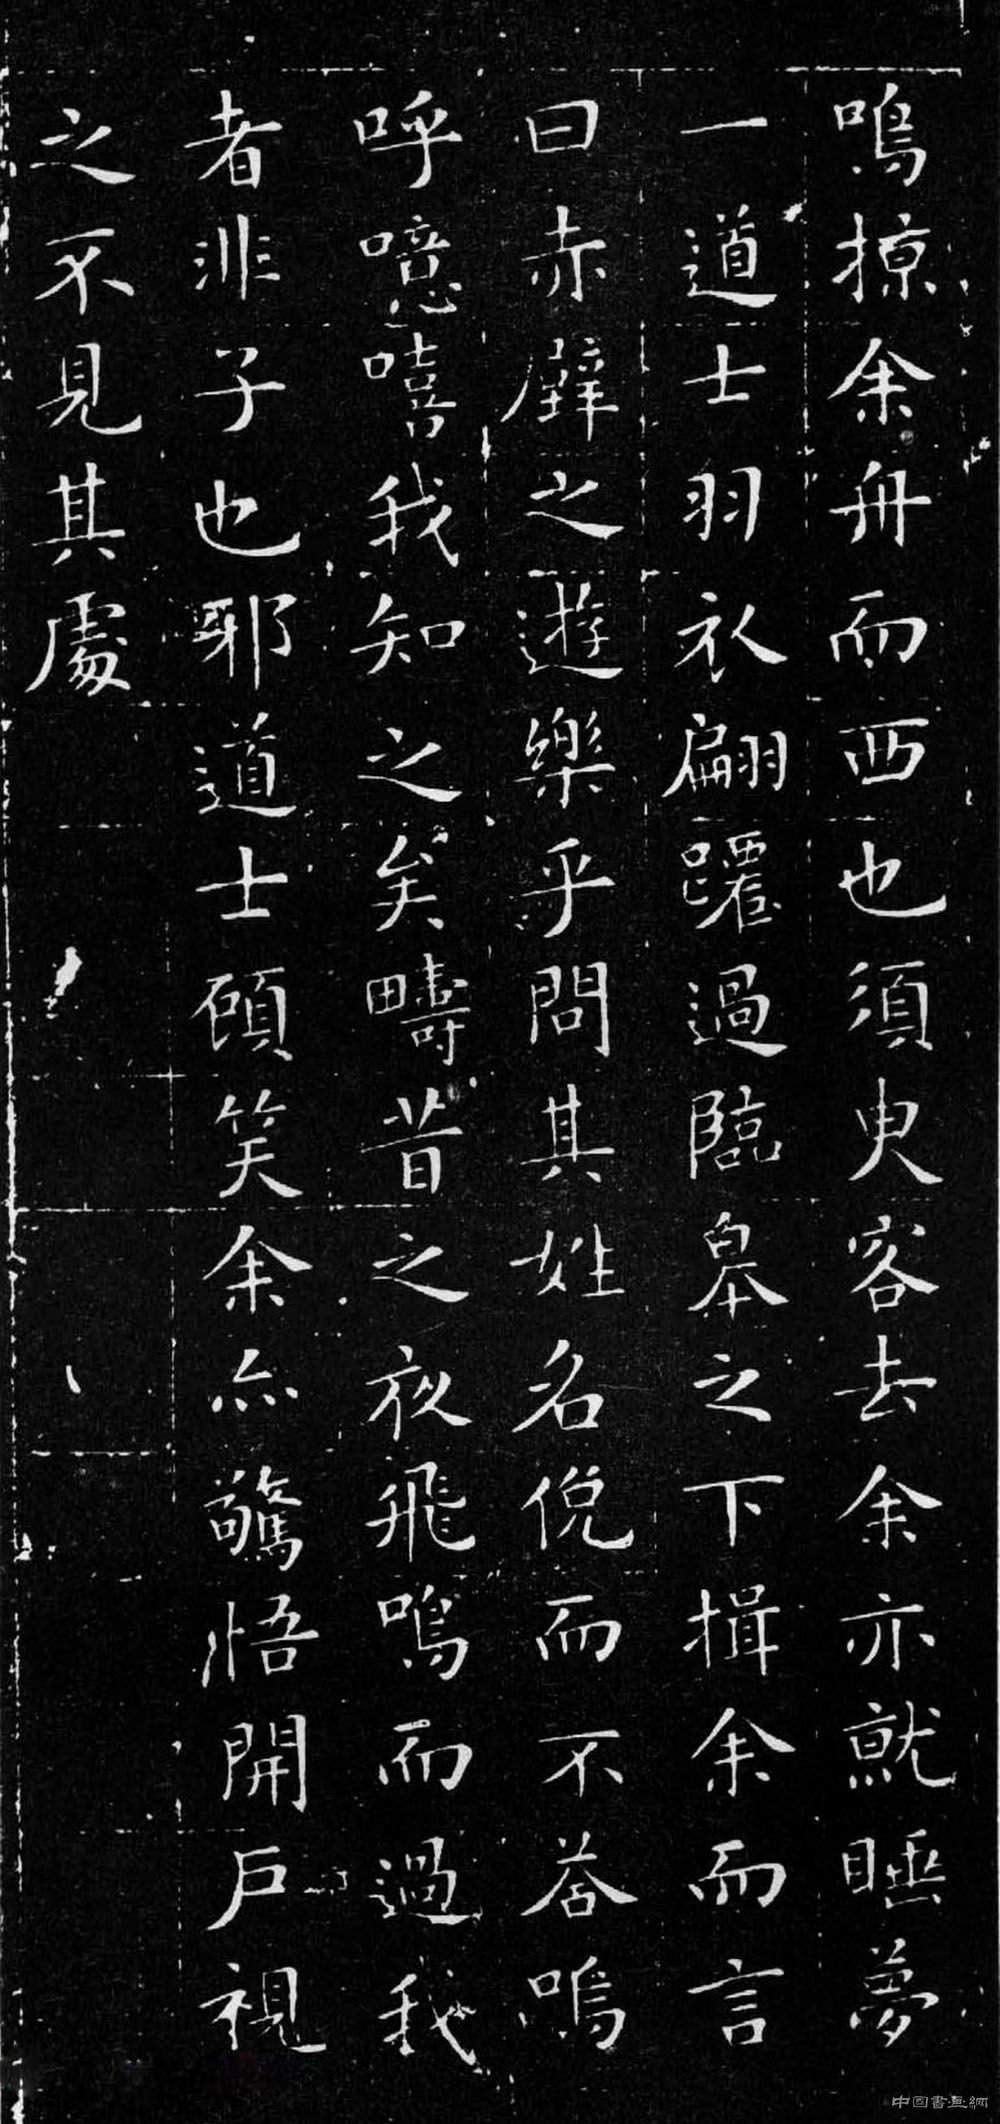 鳴掠余舟而西也須臾客去余亦就睡夢
一道士羽衣翩躚過臨皋之下揖余而言
曰赤壁之遊樂乎問其姓名俛而不荅嗚
呼噫嘻我知之矣疇昔之夜飛鳴而過我
者非子也邪道士顧笑余亦驚悟開戶視
之不見其處
中国書画網